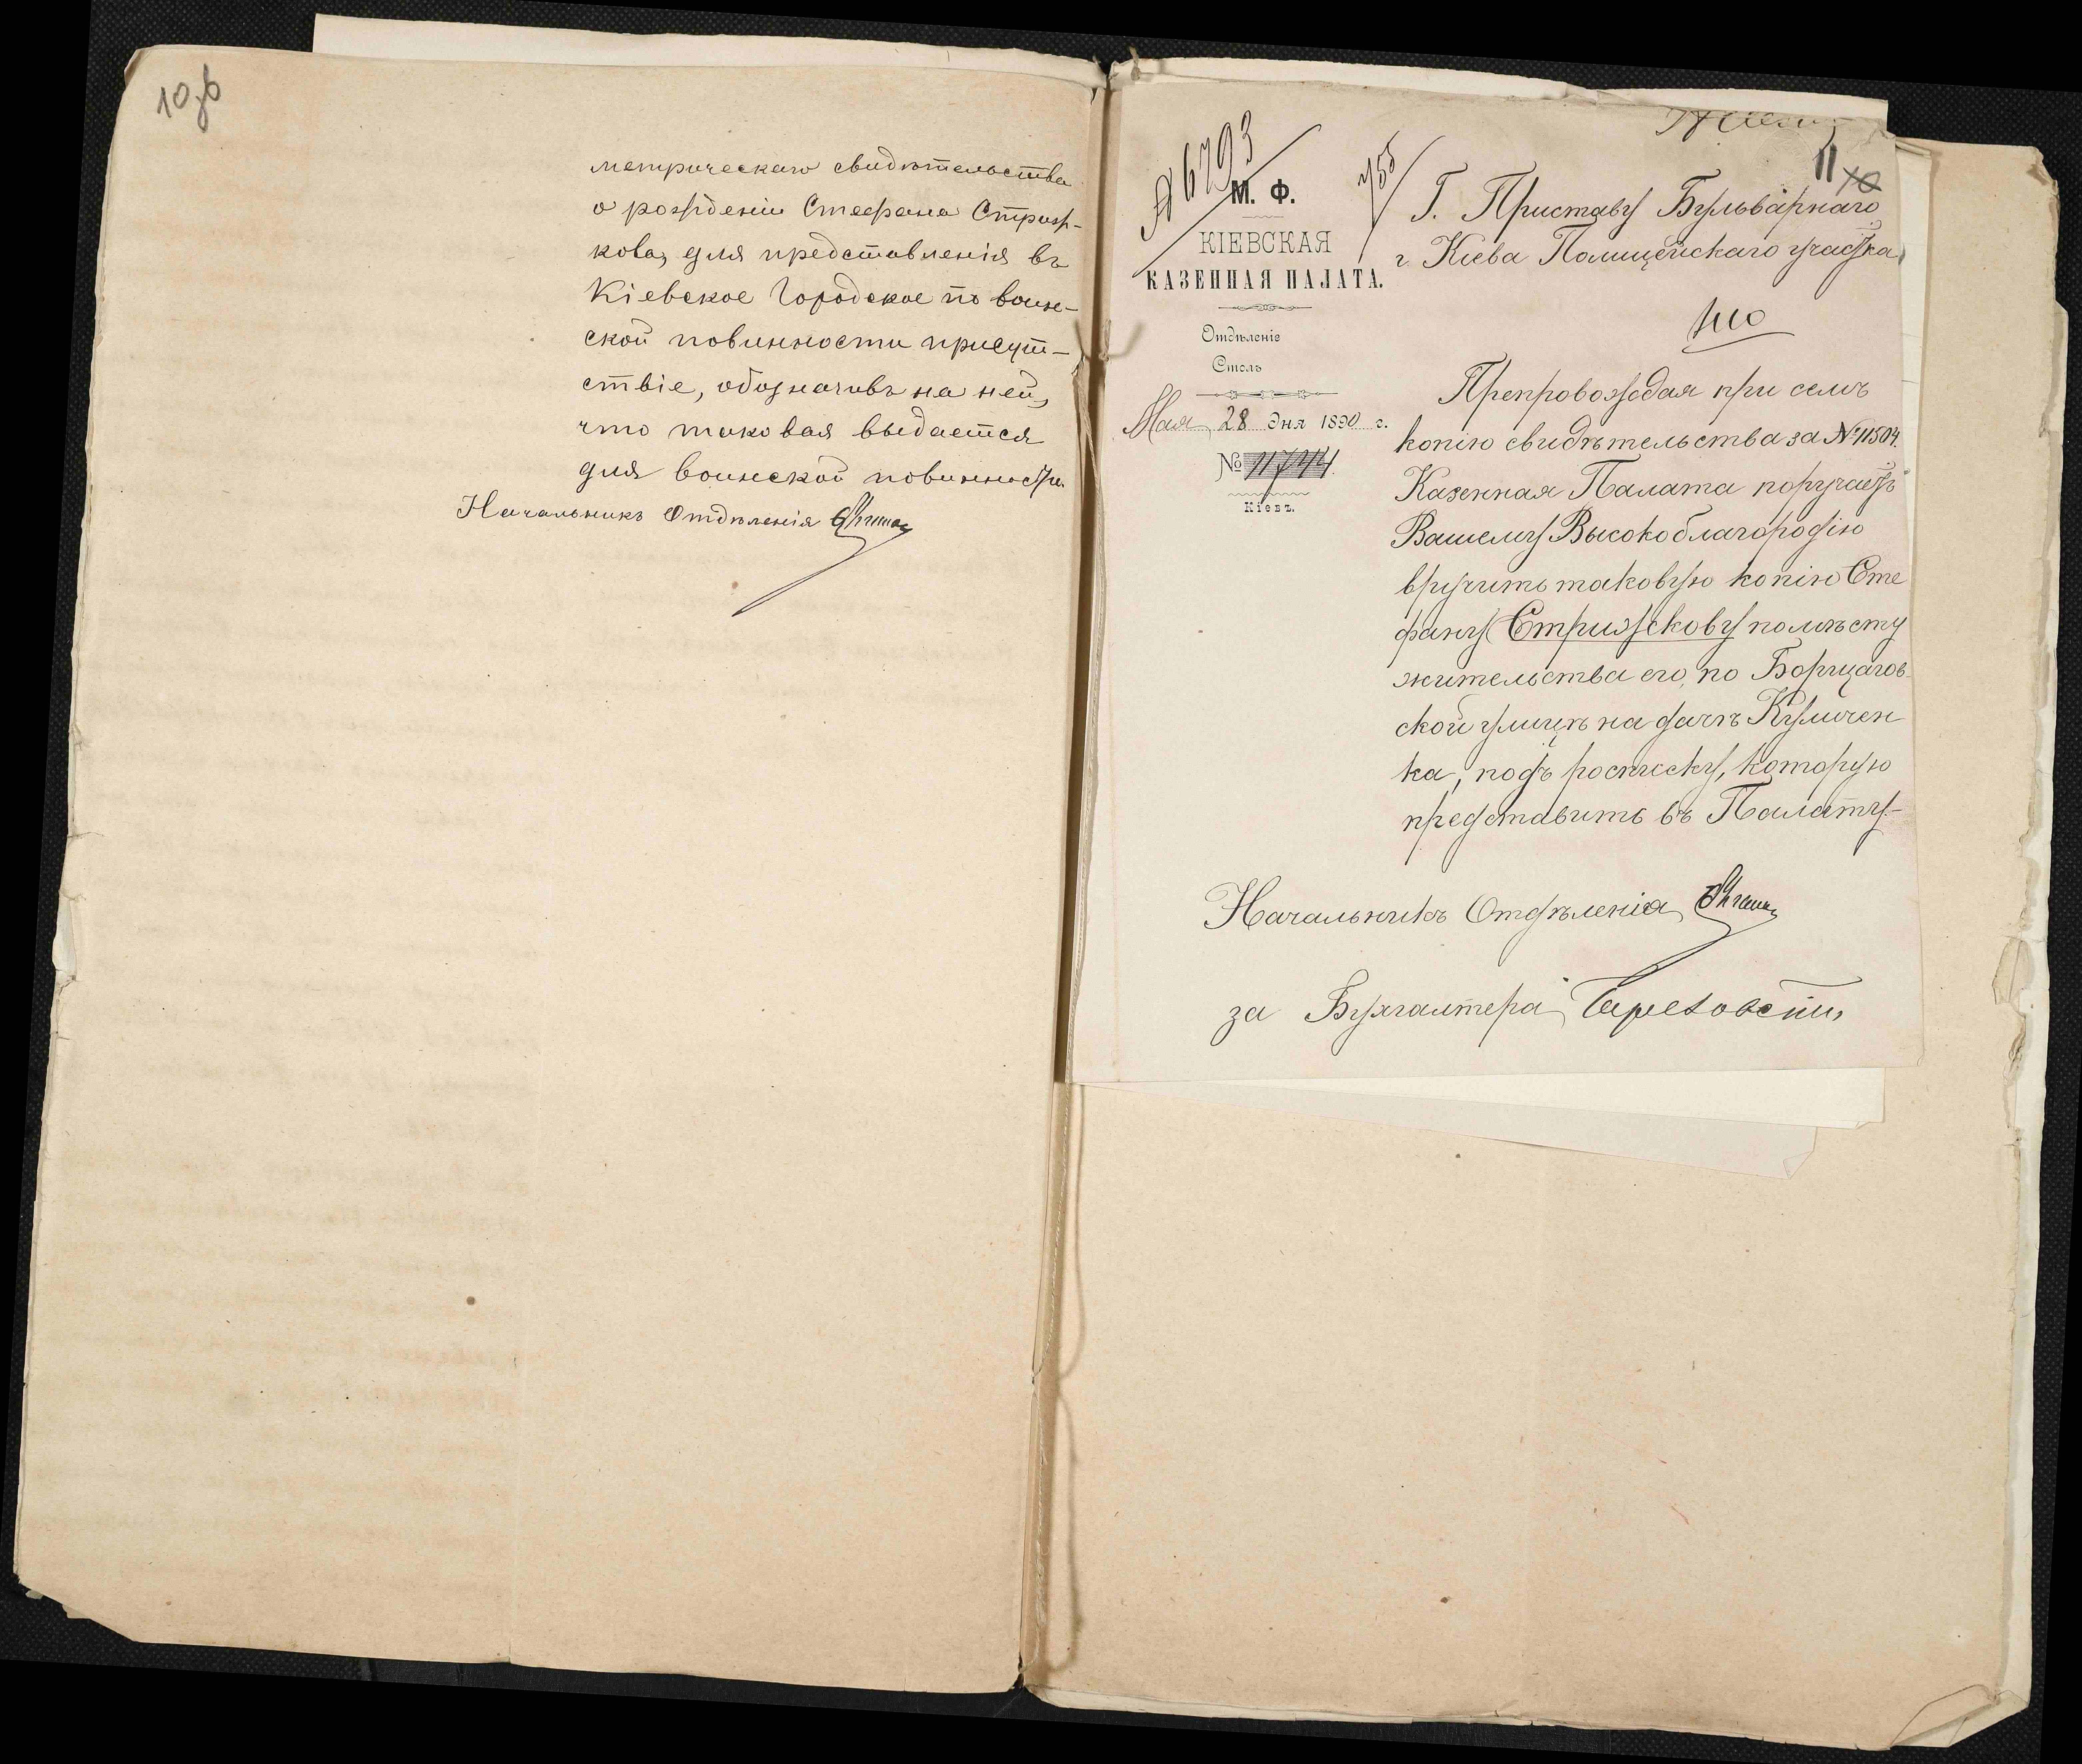 10об
метрическаго свидѣтельства
о рожденіи Стефана Стриж-
кова, для представленія въ
Кіевское Городское по воин-
ской повинности присут-
ствіе, обозначивъ на ней,
что таковая выдается
для воинской повинности.
Начальникъ Отдѣленія
№ 6793
11
10
М. Ф.
КІЕВСКАЯ
КАЗЕННАЯ ПАЛАТА.
Отдѣленіе
Столъ
Мая 28 дня 1890 г.
№ 11744.
Кіевъ.
Г. Приставу Бульварнаго
г. Кіева Полицейскаго участка
Препровождая при семъ
копію свидѣтельства за № 11504.
Казенная Палата поручаетъ
Вашему Высокоблагородію
вручить таковую копію Сте
фану Стрижскову по мѣсту
жительства его, по Борщагов-
ской улицѣ на дачѣ Кульчен
ка, подъ росписку, которую
представить въ Палату.
Начальникъ Отдѣленія
за Бухгалтера